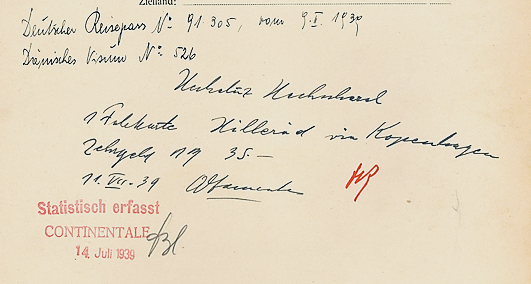 Zielland:
Deutscher Reisepass No 91.305, vom 9.X.1939
Dänisches Visum No 526
1 Fahrkarte Hilleröd via Kopenhagen
Zehrgeld 19 35.–
11.VII.39
Statistisch erfasst
CONTINENTALE
14. Juli 1939